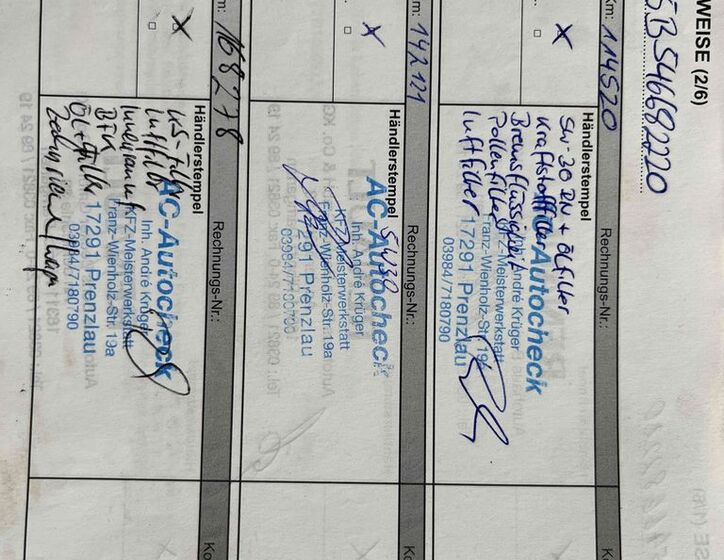 WEISE (2/6)
5.B546682220
Km: 114520
Rechnungs-Nr.:
Händlerstempel
5W-30 DN + Ölfilter
Kraftstofffilter
Bremsflüssigkeit
Pollenfilter
Luftfilter
AC-Autocheck
Inh. André Krüger
KFZ-Meisterwerkstatt
Franz-Wienholz-Str. 19a
17291 Prenzlau
03984/7180790
142121
Rechnungs-Nr.:
Händlerstempel
5W30
AC-Autocheck
Inh. André Krüger
KFZ-Meisterwerkstatt
Franz-Wienholz-Str. 19a
17291 Prenzlau
03984/7180790
m: 168278
Rechnungs-Nr.:
Händlerstempel
KS-Filter
Luftfilter
Innenraumf.
Öl + Filter
AC-Autocheck
Inh. André Krüger
KFZ-Meisterwerkstatt
Franz-Wienholz-Str. 19a
17291 Prenzlau
03984/7180790
Zahnriemen